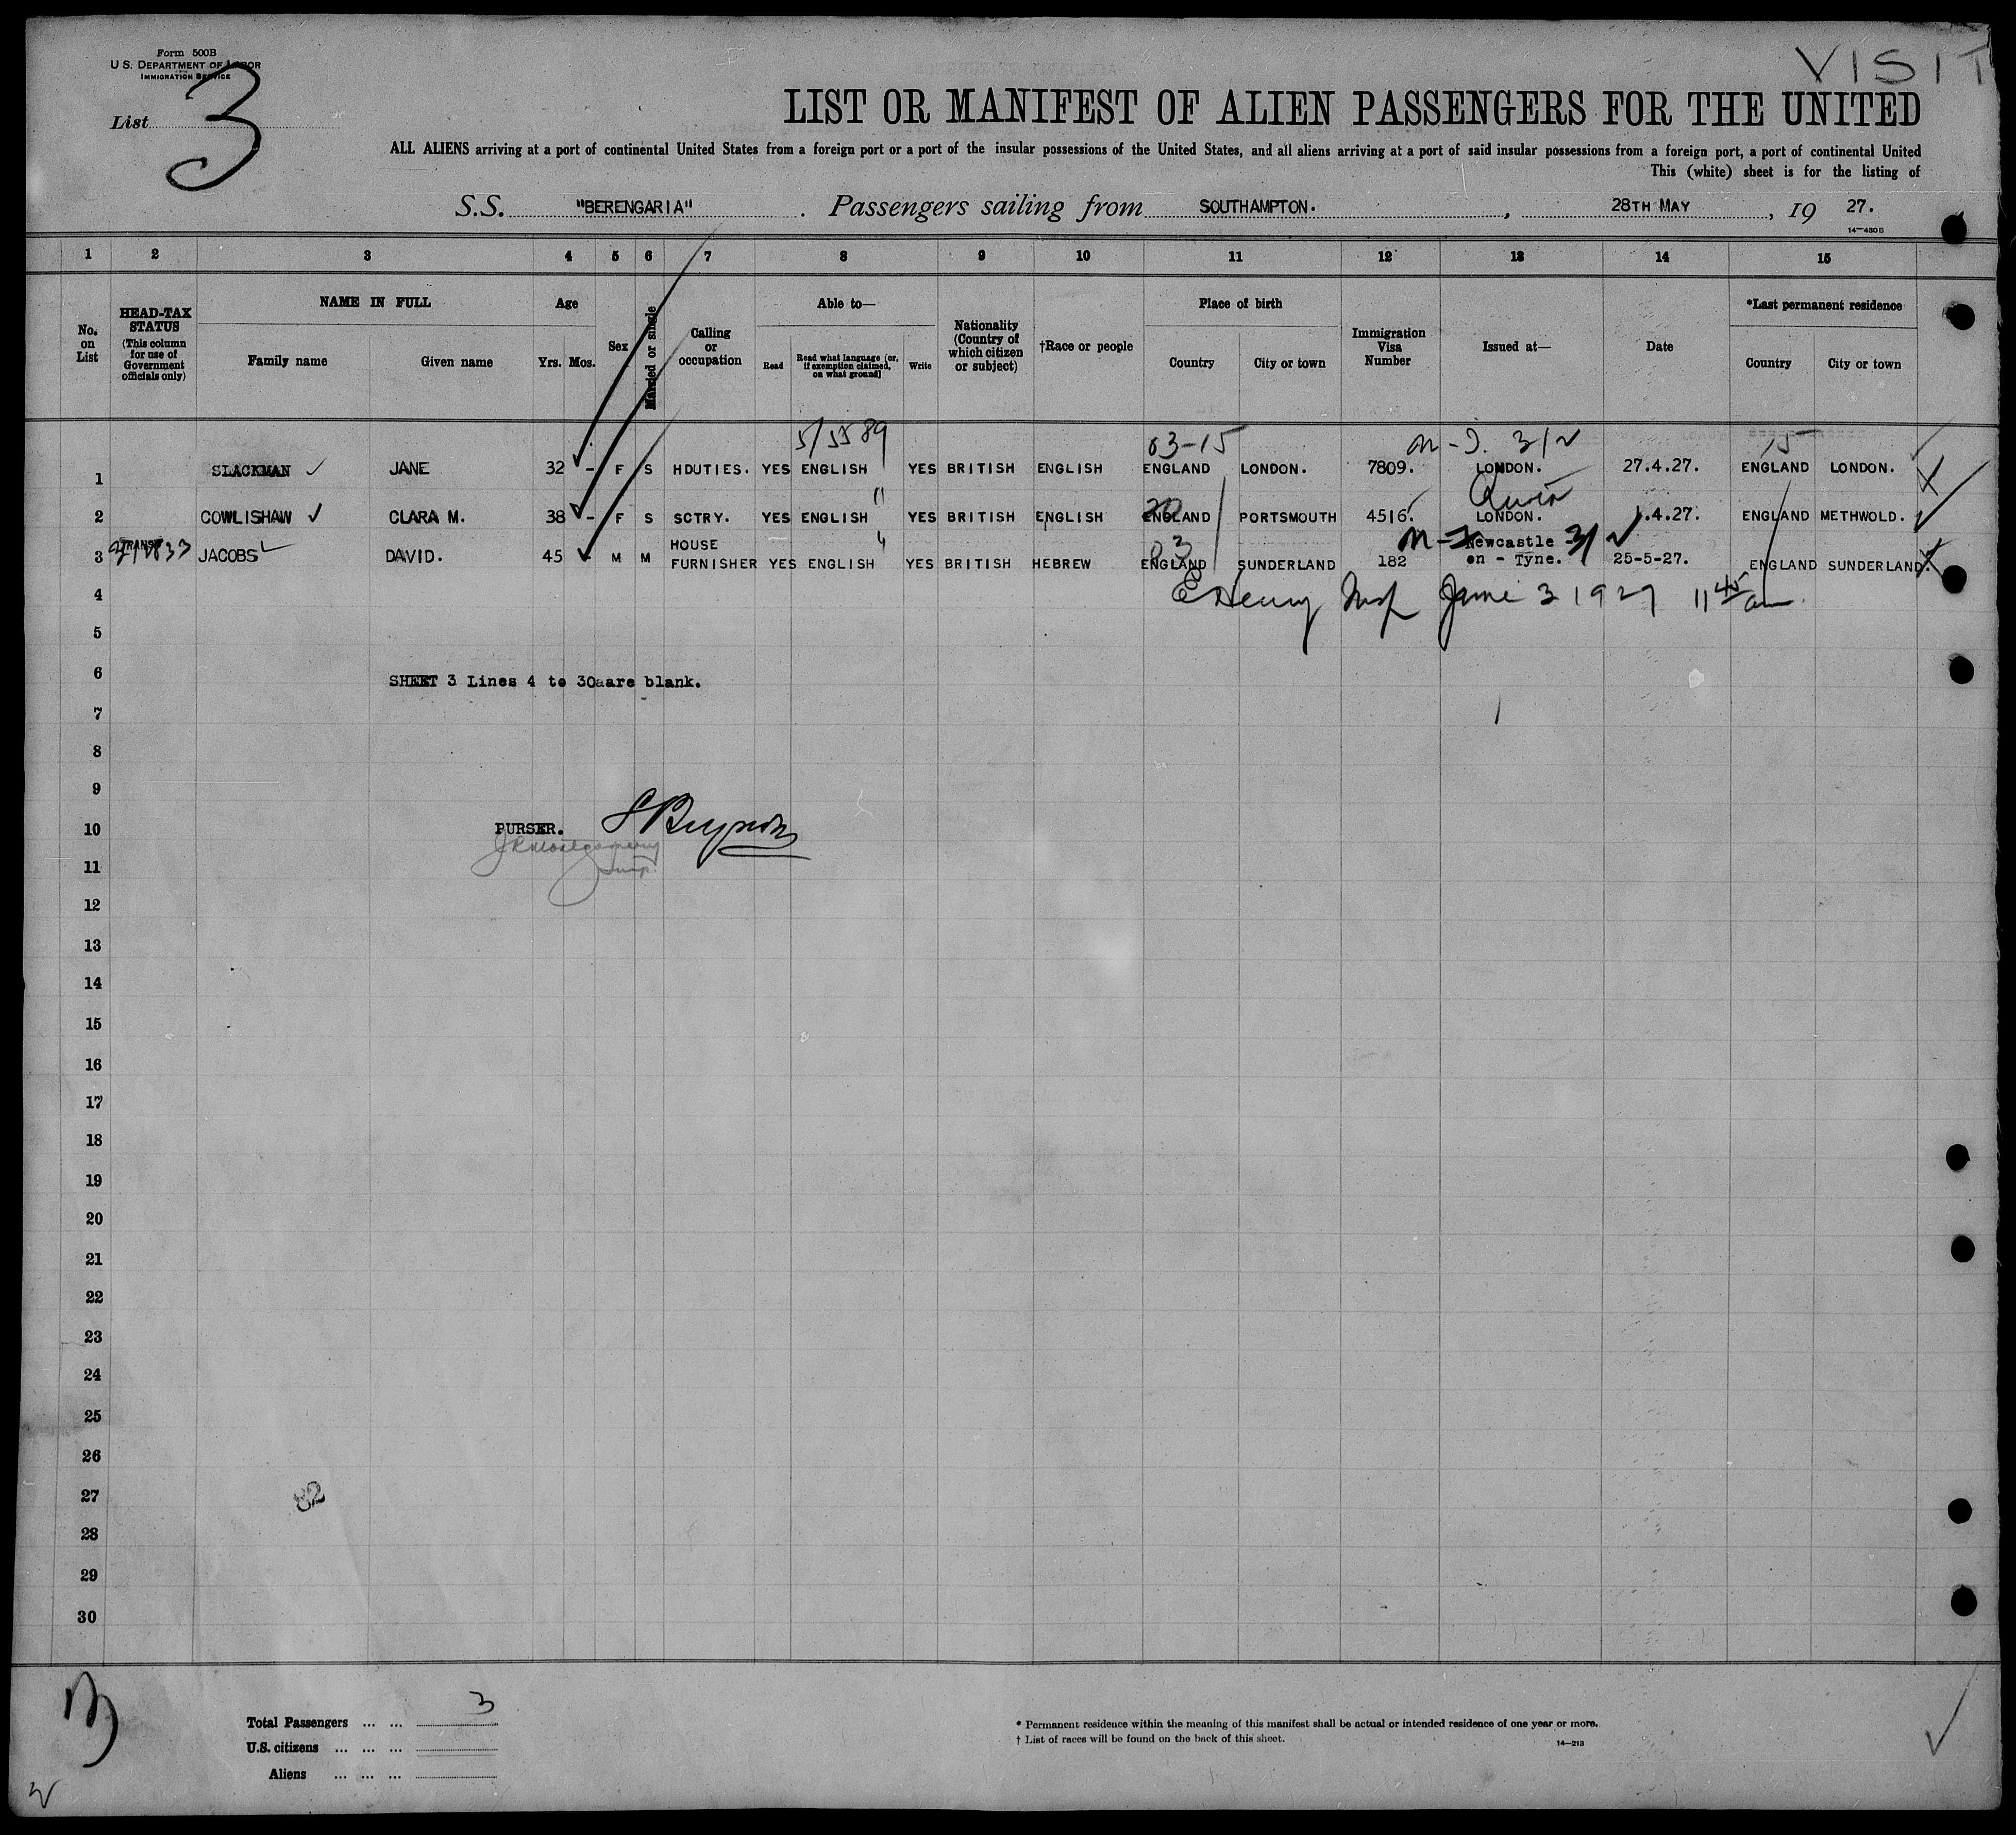 Form 500B
U.S. DEPARTMENT OF LABOR
IMMIGRATION SERVICE
VISIT
List 3
LIST OR MANIFEST OF ALIEN PASSENGERS FOR THE UNITED
ALL ALIENS arriving at a port of continental United States from a foreign port or a port of the insular possessions of the United States, and all aliens arriving at a port of said insular possessions from a foreign port, a port of continental United
This (white) sheet is for the listing of
S.S. "BERENGARIA" . Passengers sailing from SOUTHAMPTON. , 28TH MAY , 19 27.
14—430B
1 2 3 4 5 6 7 8 9 10 11 12 13 14 15
No. on List
HEAD-TAX STATUS (This column for use of Government officials only)
NAME IN FULL
Family name Given name
Age
Yrs. Mos.
Sex
Married or single
Calling or occupation
Able to—
Read Read what language (or, if exemption claimed, on what ground) Write
Nationality (Country of which citizen or subject)
†Race or people
Place of birth
Country City or town
Immigration Visa Number
Issued at—
Date
*Last permanent residence
Country City or town
5/5589 03-15 3/ 15
1 SLACKMAN JANE 32 - F S HDUTIES. YES ENGLISH YES BRITISH ENGLISH ENGLAND LONDON. 7809. LONDON. 27.4.27. ENGLAND LONDON.
2 COWLISHAW CLARA M. 38 - F S SCTRY. YES ENGLISH " YES BRITISH ENGLISH ENGLAND PORTSMOUTH 4516. LONDON. .4.27. ENGLAND METHWOLD.
3 JACOBS DAVID. 45 - M M HOUSE FURNISHER YES ENGLISH " YES BRITISH HEBREW 03 ENGLAND SUNDERLAND 182 Newcastle on - Tyne. 25-5-27. ENGLAND SUNDERLAND.
4 Henry Insp June 3 1927 11 45 am.
5
6 SHEET 3 Lines 4 to 30 are blank.
7
8
9
10 PURSER.
11
12
13
14
15
16
17
18
19
20
21
22
23
24
25
26
27 82
28
29
30
Total Passengers ... ... 3
U.S. citizens ... ... ...
Aliens ... ... ...
* Permanent residence within the meaning of this manifest shall be actual or intended residence of one year or more.
† List of races will be found on the back of this sheet.
14—213